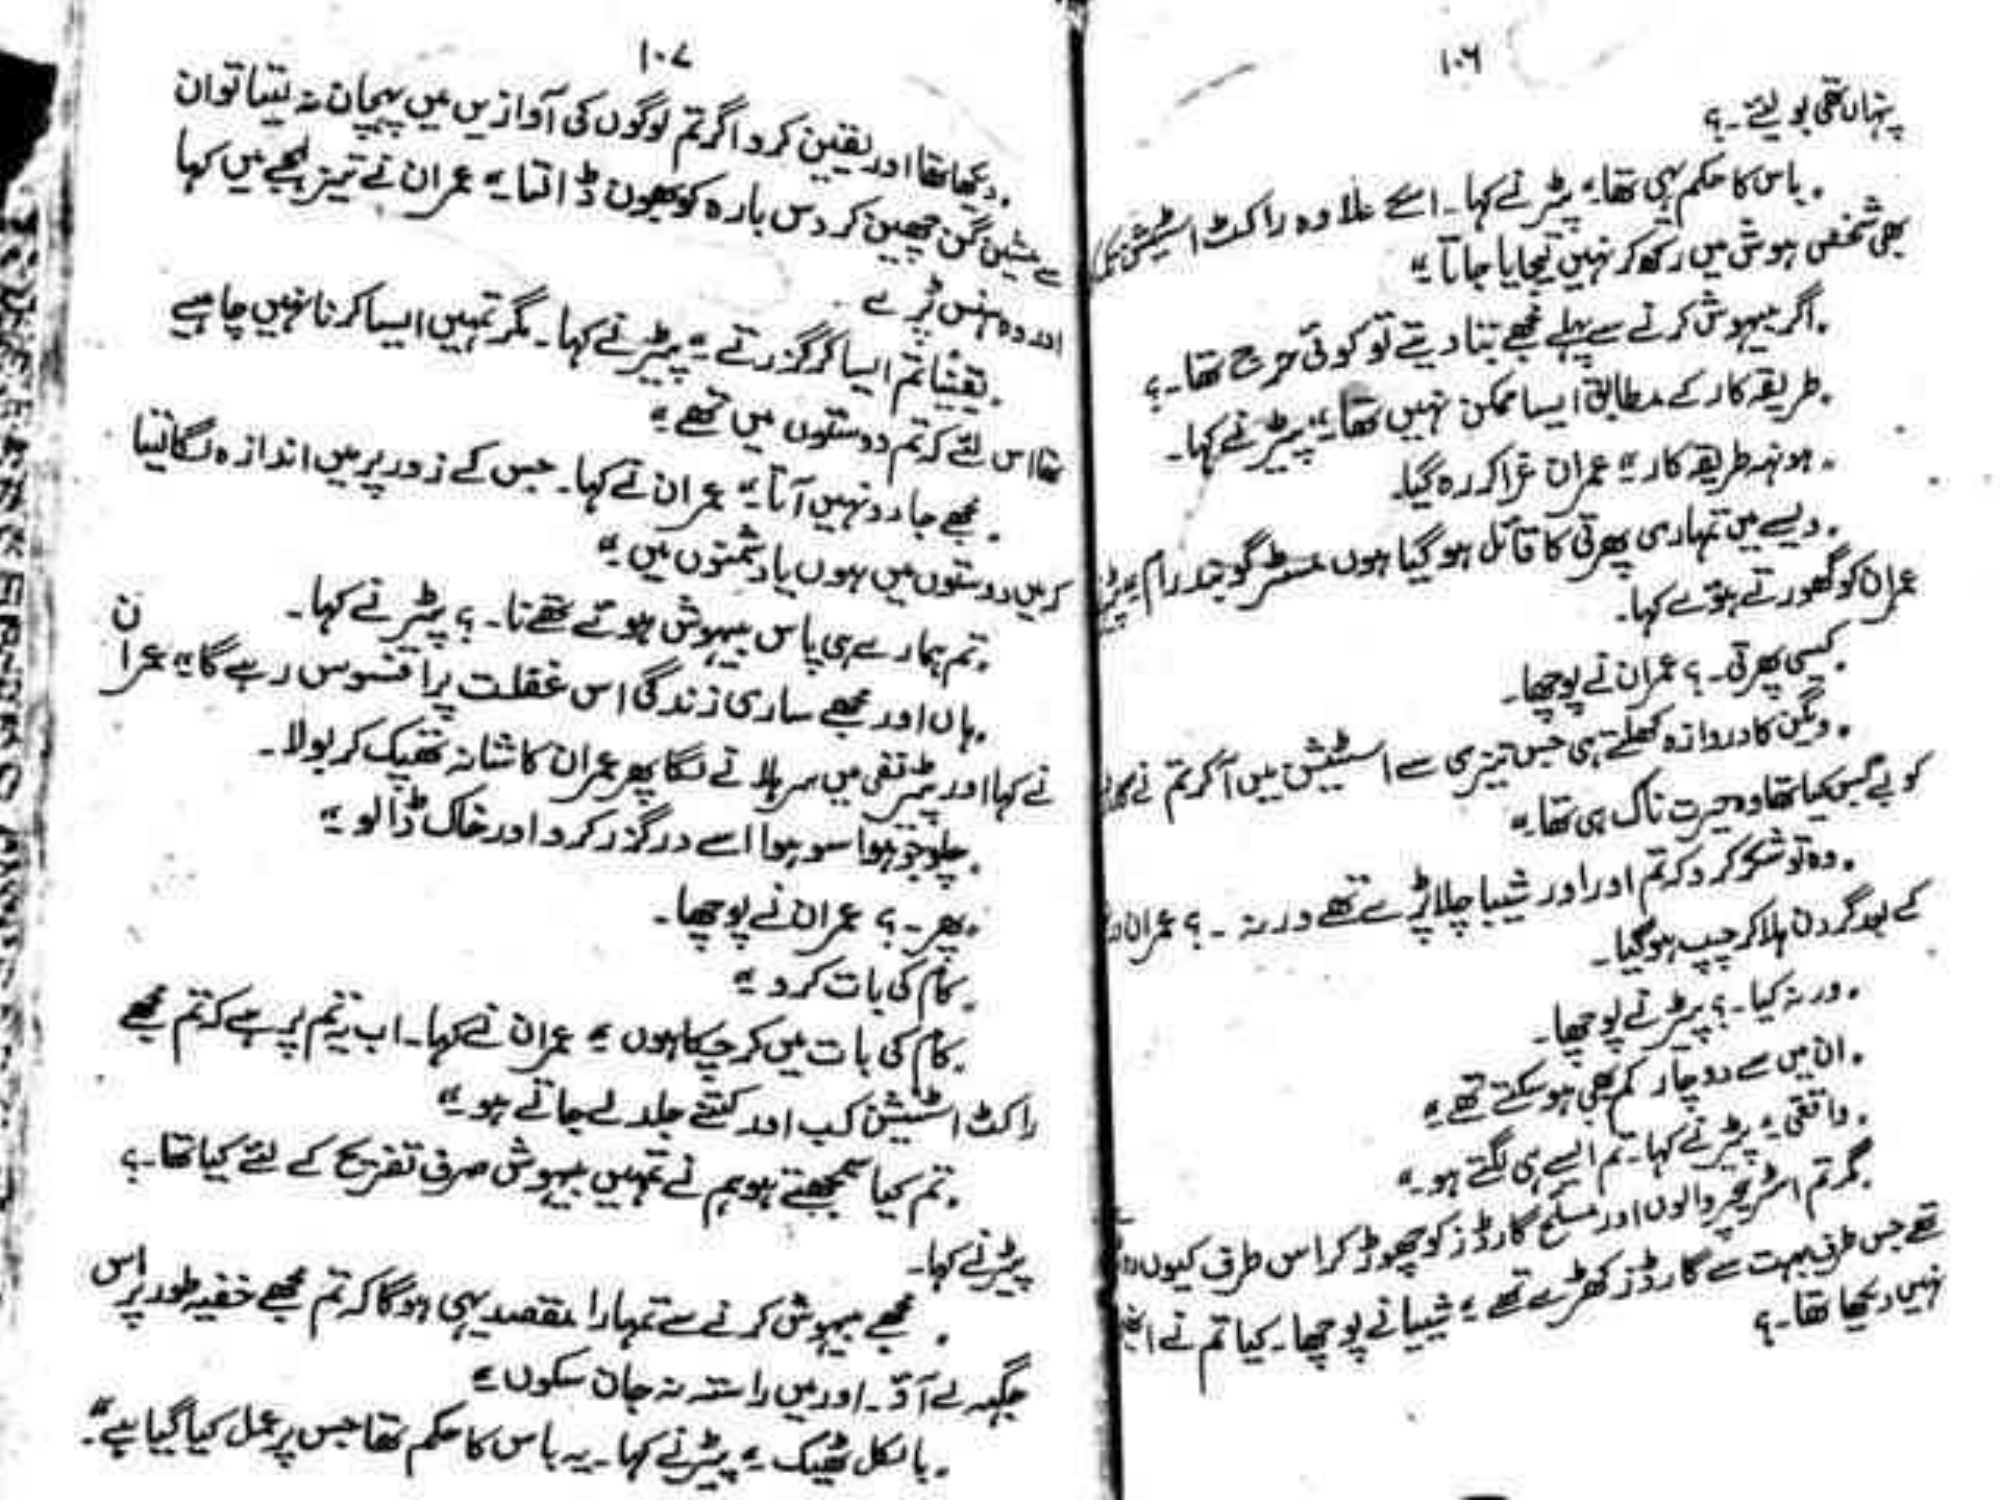 ۱۰۶
پنہاں تھی بولیئے۔؟
۔ باس کا حکم یہی تھا۔" پیٹر نے کہا۔ اسکے علاوہ راکٹ اسٹیشن تک
بھی شخص ہوش میں رکھ کر نہیں لیجایا جاتا۔"
۔ اگر بیہوش کرنے سے پہلے مجھے بتا دیتے تو کوئی حرج تھا۔؟
۔ طریقہ کار کے مطابق ایسا ممکن نہیں تھا۔" پیٹر نے کہا۔
۔ ہونہہ طریقہ کار۔" عمران غرا کر رہ گیا۔
۔ ویسے میں تمہاری پھرتی کا قائل ہو گیا ہوں مسٹر گوبند رام۔" پیٹر
عمران کو گھورتے ہوئے کہا۔
۔ کیسی پھرتی۔؟ عمران نے پوچھا۔
۔ ویگن کا دروازہ کھلتے ہی جس تیزی سے اسٹیشن میں آ کر تم نے
کو بے بس کیا تھا وہ حیرت ناک ہی تھا۔"
۔ وہ تو شکر کرو کہ تم اور اور شیبا چلا پڑے تھے ورنہ۔؟ عمران
کے بعد گردن ہلا کر چپ ہو گیا۔
۔ ورنہ کیا۔؟ پیٹر نے پوچھا۔
۔ ان میں سے دو چار کم بھی ہو سکتے تھے۔"
۔ واقعی۔" پیٹر نے کہا۔ تم ایسے ہی لگتے ہو۔"
۔ مگر تم اسٹریچر والوں اور مسلح گارڈز کو چھوڑ کر اس طرف کیوں
تھے جس طرف بہت سے گارڈز کھڑے تھے۔" شیبا نے پوچھا۔ کیا تم نے
نہیں دیکھا تھا۔؟
۱۰۷
۔ دیکھا تھا اور یقین کرو اگر تم لوگوں کی آوازیں میں پہچان نہ لیتا تو ان
سے مشین گن چھین کر دس بارہ کو بھون ڈالتا۔" عمران نے تیز لہجے میں کہا
اور وہ ہنس پڑے
۔ یقیناً تم ایسا کر گزرتے۔" پیٹر نے کہا۔ مگر تمہیں ایسا کرنا نہیں چاہیے
تھا اس لئے کہ تم دوستوں میں تھے۔"
۔ مجھے جادو نہیں آتا۔" عمران نے کہا۔ جس کے زور پر میں اندازہ لگا لیتا
کہ میں دوستوں میں ہوں یا دشمنوں میں۔"
۔ تم ہمارے ہی پاس بیہوش ہوئے تھے نا۔؟ پیٹر نے کہا۔
۔ ہاں اور مجھے ساری زندگی اس غفلت پر افسوس رہے گا۔" عمران
نے کہا اور پیٹر نفی میں سر ہلانے لگا پھر عمران کا شانہ تھپک کر بولا۔
۔ چلو جو ہوا سو ہوا اسے درگزر کرو اور خاک ڈالو۔"
۔ پھر۔؟ عمران نے پوچھا۔
۔ کام کی بات کرو۔"
۔ کام کی بات میں کر چکا ہوں۔" عمران نے کہا۔ اب یہ تم پر ہے کہ تم مجھے
راکٹ اسٹیشن کب اور کتنے جلد لے جاتے ہو۔"
۔ تم کیا سمجھتے ہو ہم نے تمہیں بیہوش صرف تفریح کے لئے کیا تھا۔؟
پیٹر نے کہا۔
۔ مجھے بیہوش کرنے سے تمہارا مقصد یہی ہوگا کہ تم مجھے خفیہ طور پر اس
جگہ لے آؤ۔ اور میں راستہ نہ جان سکوں۔"
۔ بالکل ٹھیک۔" پیٹر نے کہا۔ یہ باس کا حکم تھا جس پر عمل کیا گیا ہے۔"